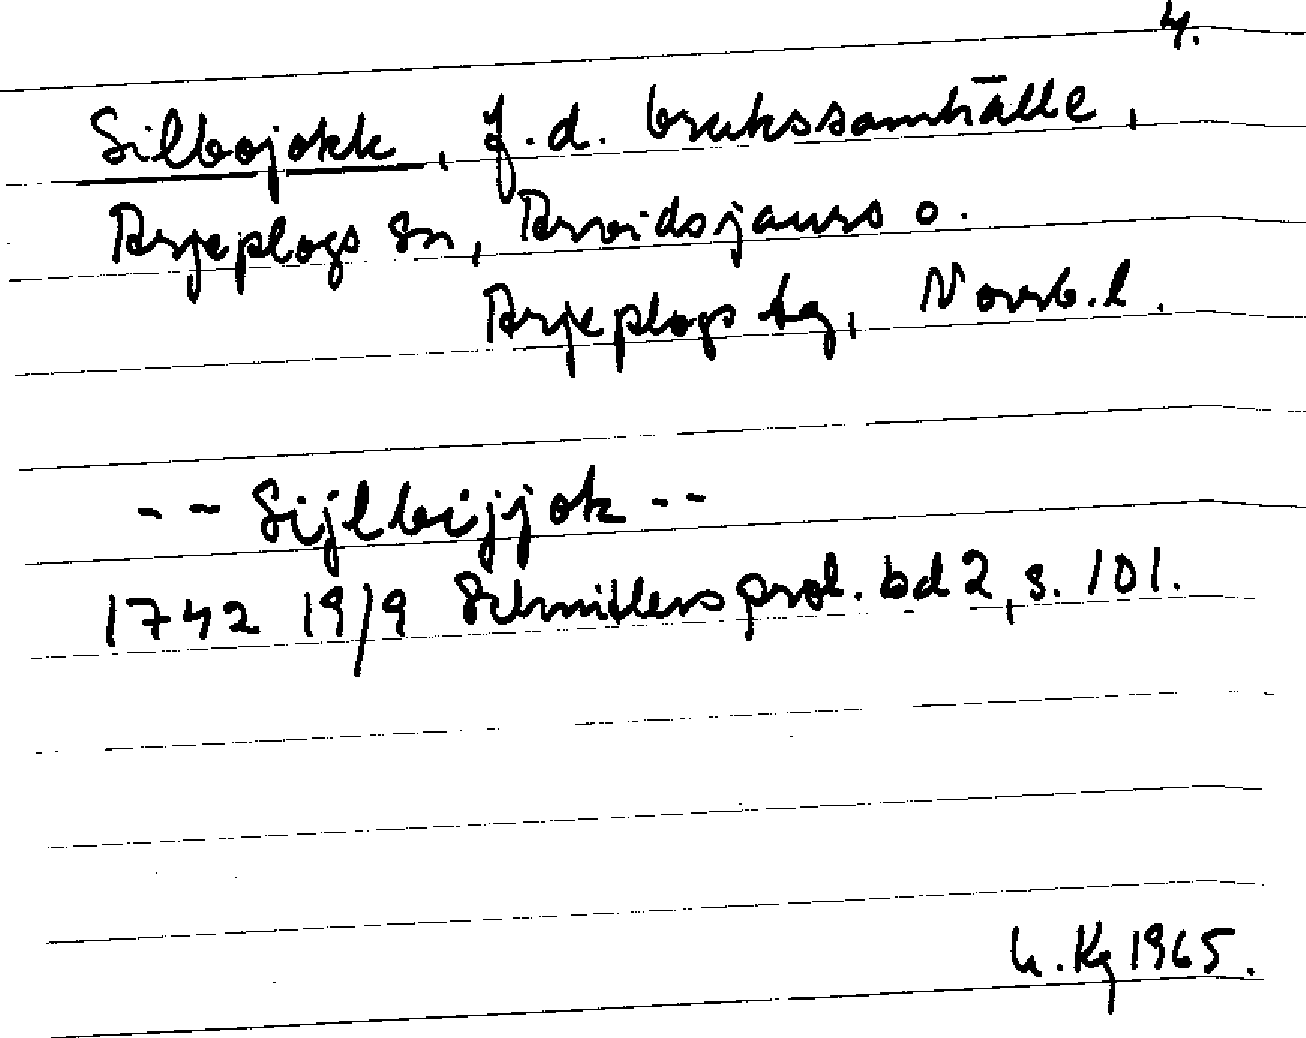 4.
Silbojokk, f.d. brukssamhälle,
Arjeplogs sn, Arvidsjaurs o.
Arjeplogs tg, Norrb.l.
-- Sijlbijjok --
1742 19/9 Schnitlers prot. bd 2, s. 101.
1965.